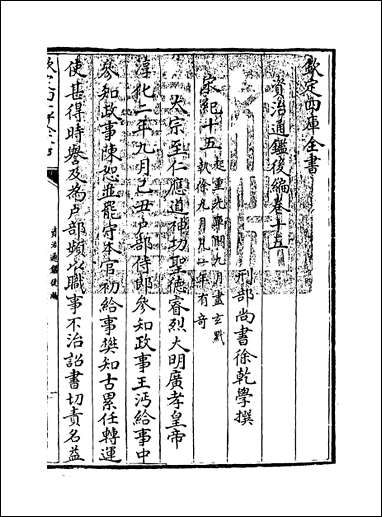 欽定四庫全書
資治通鑑後編卷十五
刑部尚書徐乾學撰
宋紀十五
起重光單閼九月盡玄黓
執徐九月凡一年有奇
太宗至仁應道神功聖德睿烈大明廣孝皇帝
淳化二年九月己丑户部侍郎參知政事王沔給事中
參知政事陳恕並罷守本官初給事樊知古累任轉運
使甚得時譽及為户部頻以職事不治詔書切責名益
資治通鑑後編